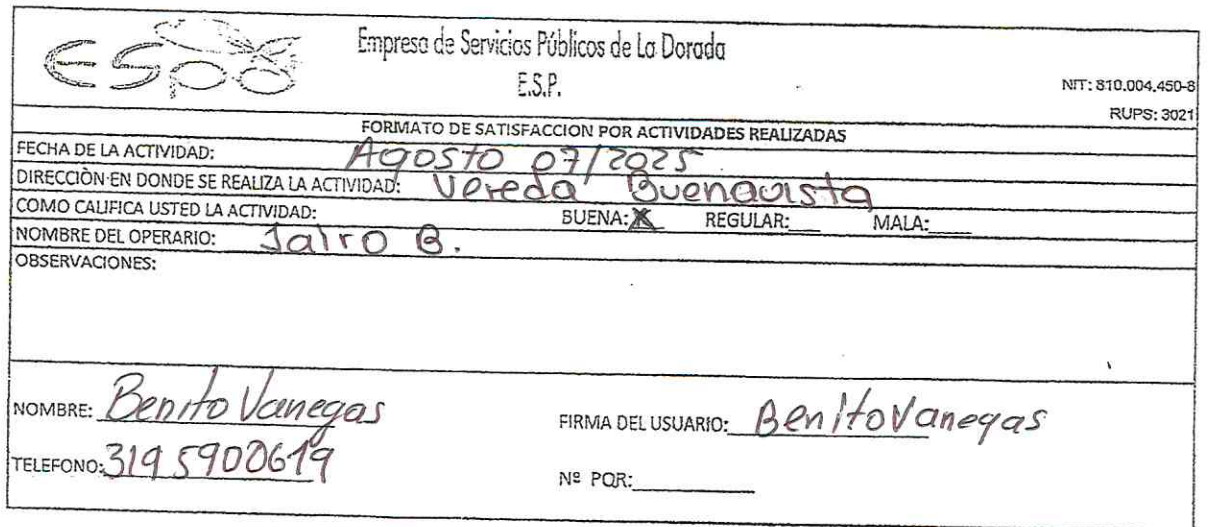 ESPD
Empresa de Servicios Públicos de La Dorada
E.S.P.
NIT: 810.004.450-8
RUPS: 3021
FORMATO DE SATISFACCION POR ACTIVIDADES REALIZADAS
FECHA DE LA ACTIVIDAD: Agosto 07/2025
DIRECCIÒN EN DONDE SE REALIZA LA ACTIVIDAD: Vereda Buenavista
COMO CALIFICA USTED LA ACTIVIDAD: BUENA: X REGULAR:___ MALA:____
NOMBRE DEL OPERARIO: Jairo B.
OBSERVACIONES:
NOMBRE: Benito Vanegas FIRMA DEL USUARIO: Benito Vanegas
TELEFONO: 3195900619 Nº PQR:___________